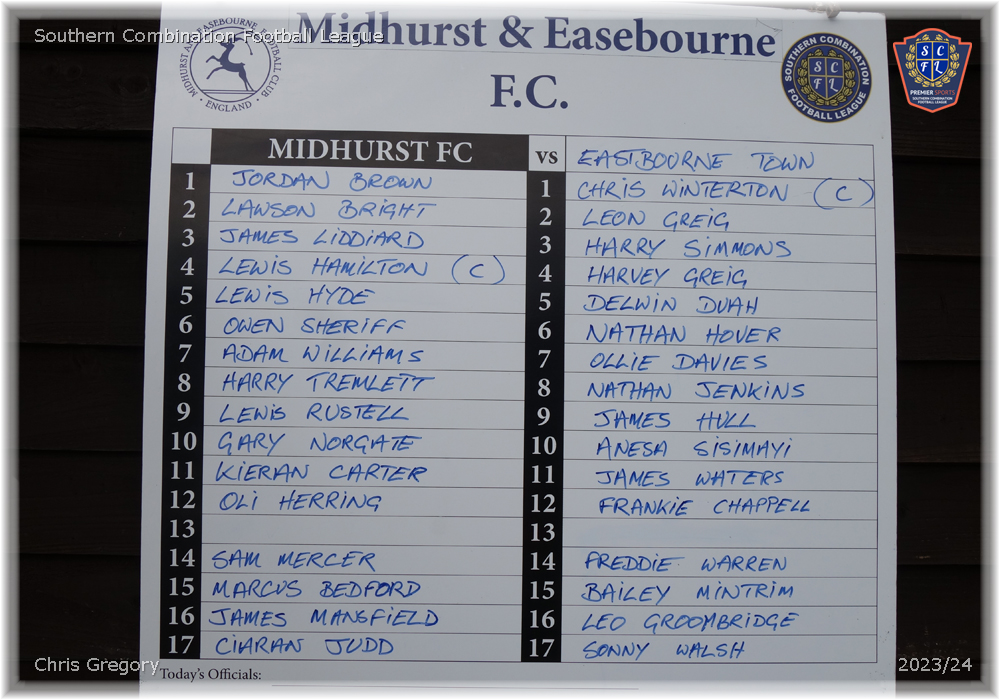 Southern Combination Football League
Midhurst & Easebourne
F.C.
MIDHURST AND EASEBOURNE FOOTBALL CLUB
· ENGLAND ·
SOUTHERN COMBINATION
FOOTBALL LEAGUE
S C
F L
S C
F L
PREMIER SPORTS
SOUTHERN COMBINATION
FOOTBALL LEAGUE
MIDHURST FC vs EASTBOURNE TOWN
1 JORDAN BROWN 1 CHRIS WINTERTON (C)
2 LAWSON BRIGHT 2 LEON GREIG
3 JAMES LIDDIARD 3 HARRY SIMMONS
4 LEWIS HAMILTON (C) 4 HARVEY GREIG
5 LEWIS HYDE 5 DELWIN DUAH
6 OWEN SHERIFF 6 NATHAN HOVER
7 ADAM WILLIAMS 7 OLLIE DAVIES
8 HARRY TREMLETT 8 NATHAN JENKINS
9 LEWIS RUSTELL 9 JAMES HULL
10 GARY NORGATE 10 ANESA SISIMAYI
11 KIERAN CARTER 11 JAMES WATERS
12 OLI HERRING 12 FRANKIE CHAPPELL
13 13
14 SAM MERCER 14 FREDDIE WARREN
15 MARCUS BEDFORD 15 BAILEY MINTRIM
16 JAMES MANSFIELD 16 LEO GROOMBRIDGE
17 CIARAN JUDD 17 SONNY WALSH
Today's Officials:
Chris Gregory
2023/24